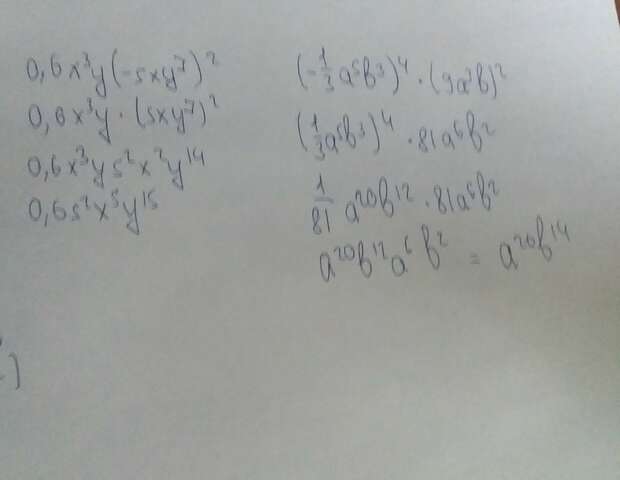 0,6x³y(-sxy⁷)²
0,6x³y · (sxy⁷)²
0,6x³ys²x²y¹⁴
0,6s²x⁵y¹⁵
(-1/3a⁵b³)⁴ · (9a³b)²
(1/3a⁵b³)⁴ · 81a⁶b²
1/81 a²⁰b¹² · 81a⁶b²
a²⁰b¹²a⁶b² = a²⁶b¹⁴